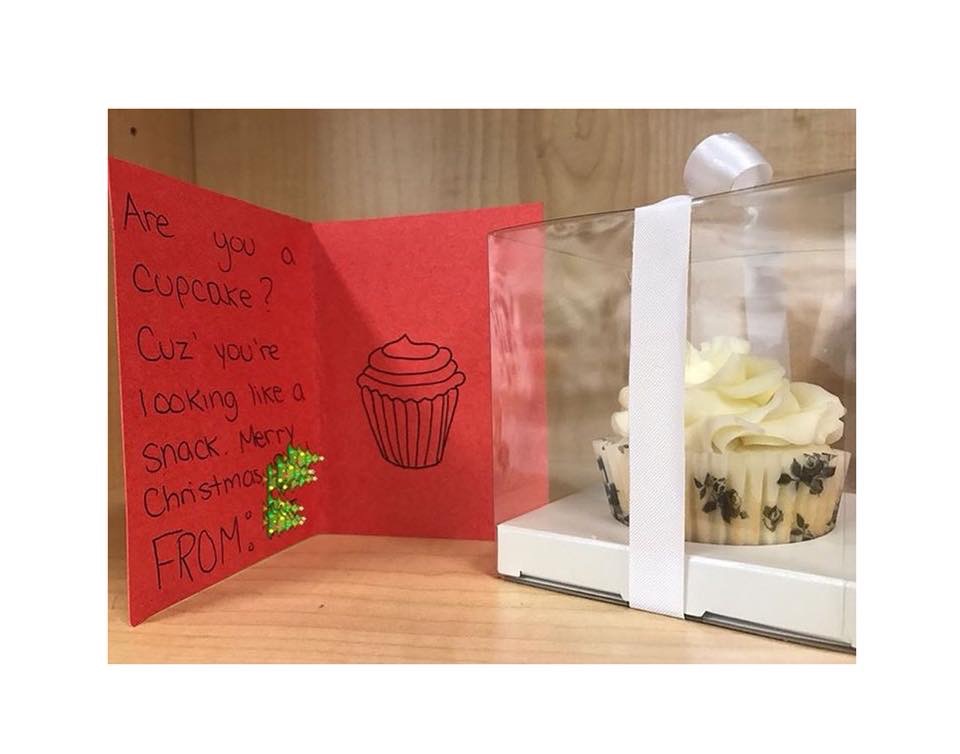 Are you a
Cupcake?
Cuz' you're
looking like a
snack. Merry
Christmas
FROM: